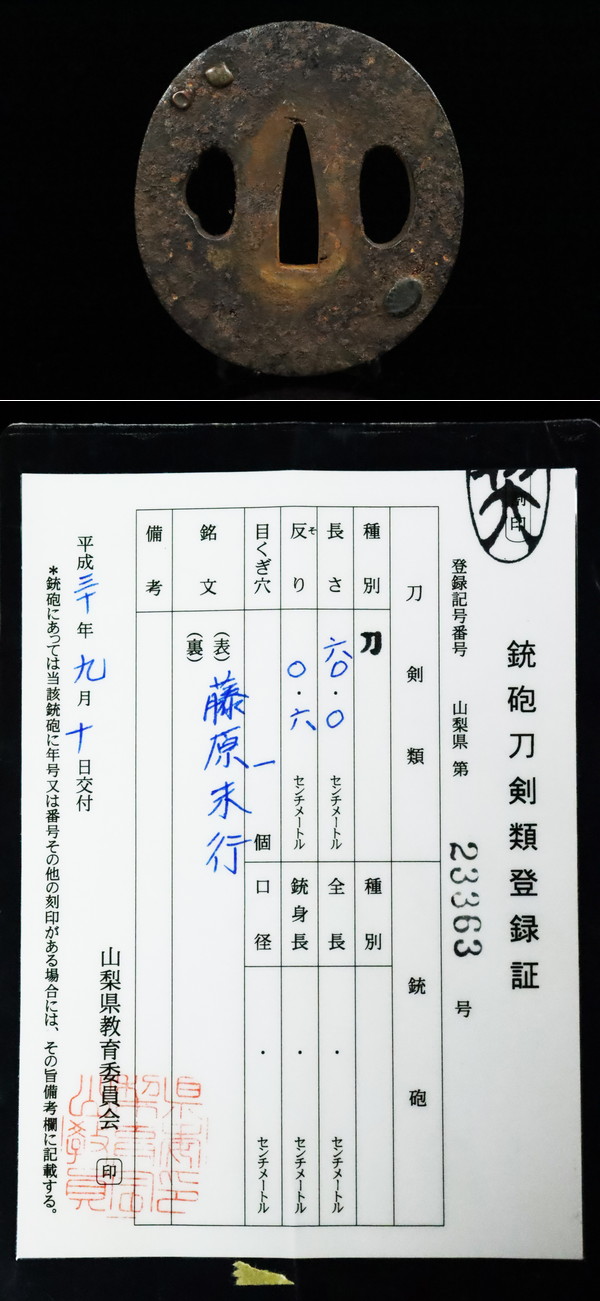 銃砲刀剣類登録証
登録記号番号 山梨県 第 23363 号
刀剣類 銃砲
種別 刀 種別
長さ 六〇.〇 センチメートル 全長 . センチメートル
反り 〇.六 センチメートル 銃身長 . センチメートル
そ
目くぎ穴 一個 口径 . センチメートル
銘文 (表) 藤原末行
(裏)
備考
平成三十年九月十日交付
山梨県教育委員会 印
*銃砲にあっては当該銃砲に年号又は番号その他の刻印がある場合には、その旨備考欄に記載する。